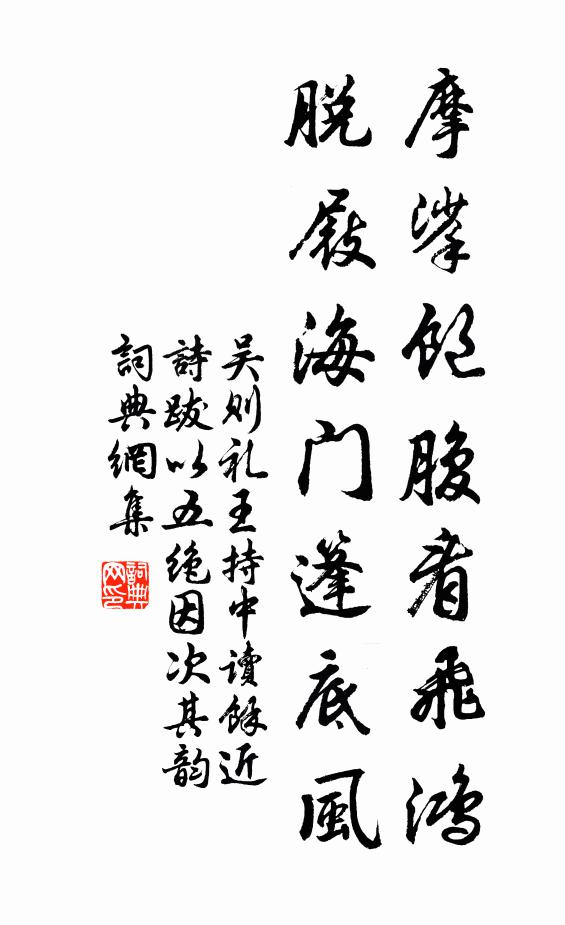 摩挲饱腹看飛鴻
脱屐海门篷底風
吴则礼王持中讀餘近
詩跋以五绝因次其韵
詞典網集
詞典网印